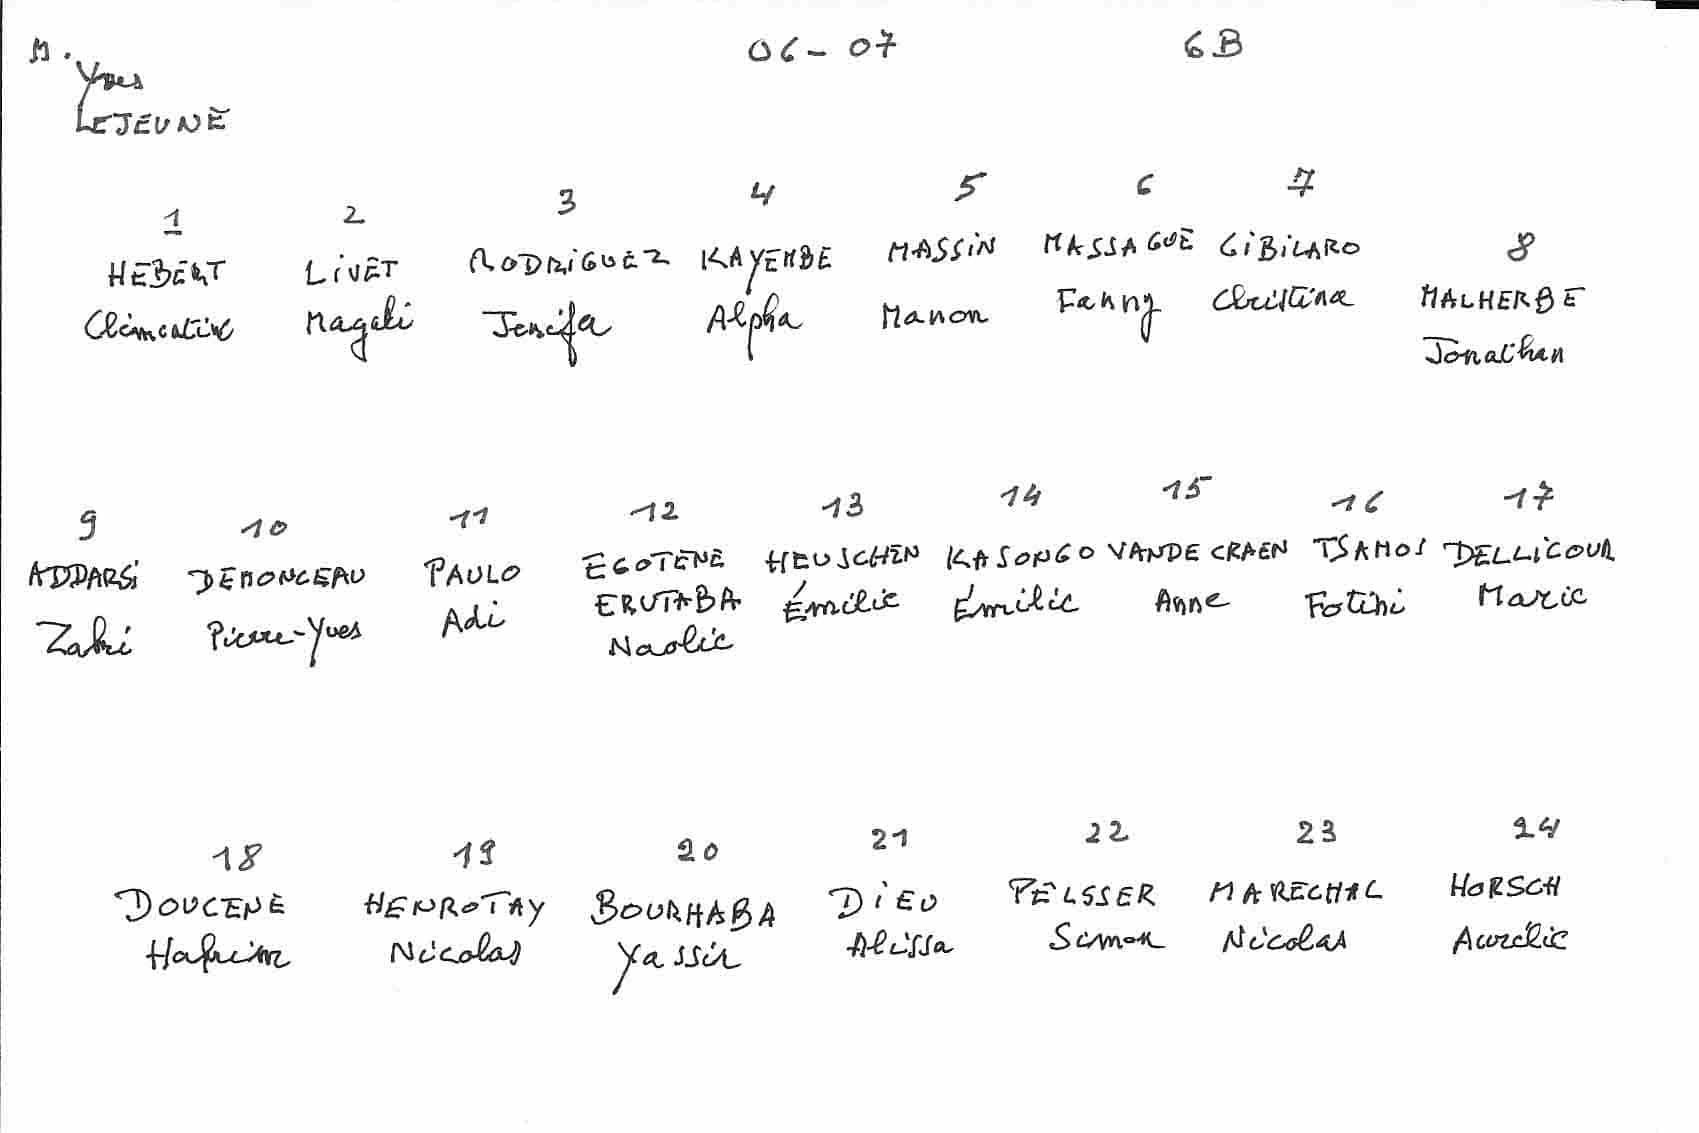 M. 06-07 6B
Yves
LEJEUNE
1 2 3 4 5 6 7 8
HEBERT LIVET RODRIGUEZ KAYEMBE MASSIN MASSAGUE GIBILARO MALHERBE
Clémentine Magali Jenifa Alpha Manon Fanny Christina Jonathan
9 10 11 12 13 14 15 16 17
ADDARSI DEMONCEAU PAULO EGOTENE HEUSCHEN KASONGO VANDE CRAEN TSAMOS DELLICOUR
ERUTABA
Zakri Pierre-Yves Adi Naolie Émilie Émilie Anne Fotini Marie
18 19 20 21 22 23 24
DOUCENE HENROTAY BOURHABA DIEU PELSSER MARECHAL HORSCH
Nicolas Yassir Alissa Simon Nicolas Aurélie